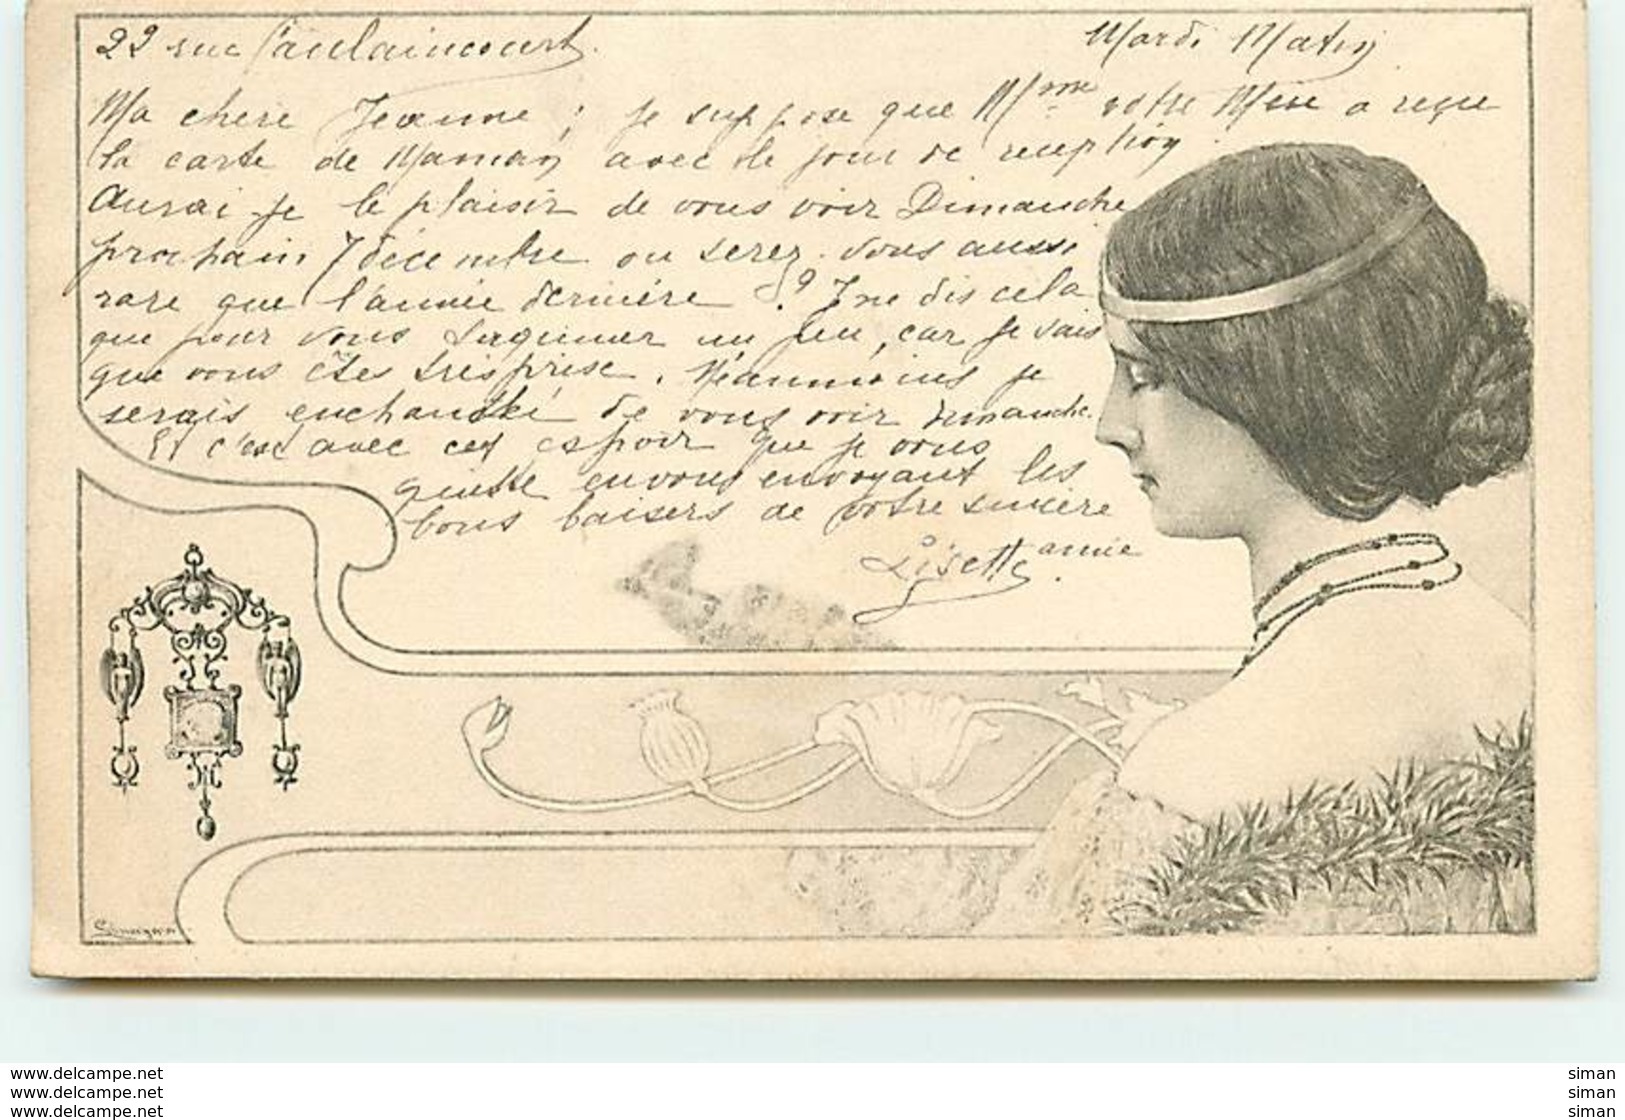 22 rue Caulaincourt. Mardi Matin
Ma chere Jeanne ; je suppose que Mme votre Mère a reçu
la carte de Maman avec le jour de reception
Aurai je le plaisir de vous voir Dimanche
prochain 7 décembre ou serez-vous aussi
rare que l'année dernière ? Je ne dis cela
que pour vous taquiner un peu, car je sais
que vous êtes très prise. Néanmoins je
serais enchantée de vous voir dimanche.
Et c'est avec cet espoir que je vous
quitte en vous envoyant les
bons baisers de votre sincère
amie
Lisette.
www.delcampe.net siman
www.delcampe.net siman
www.delcampe.net siman